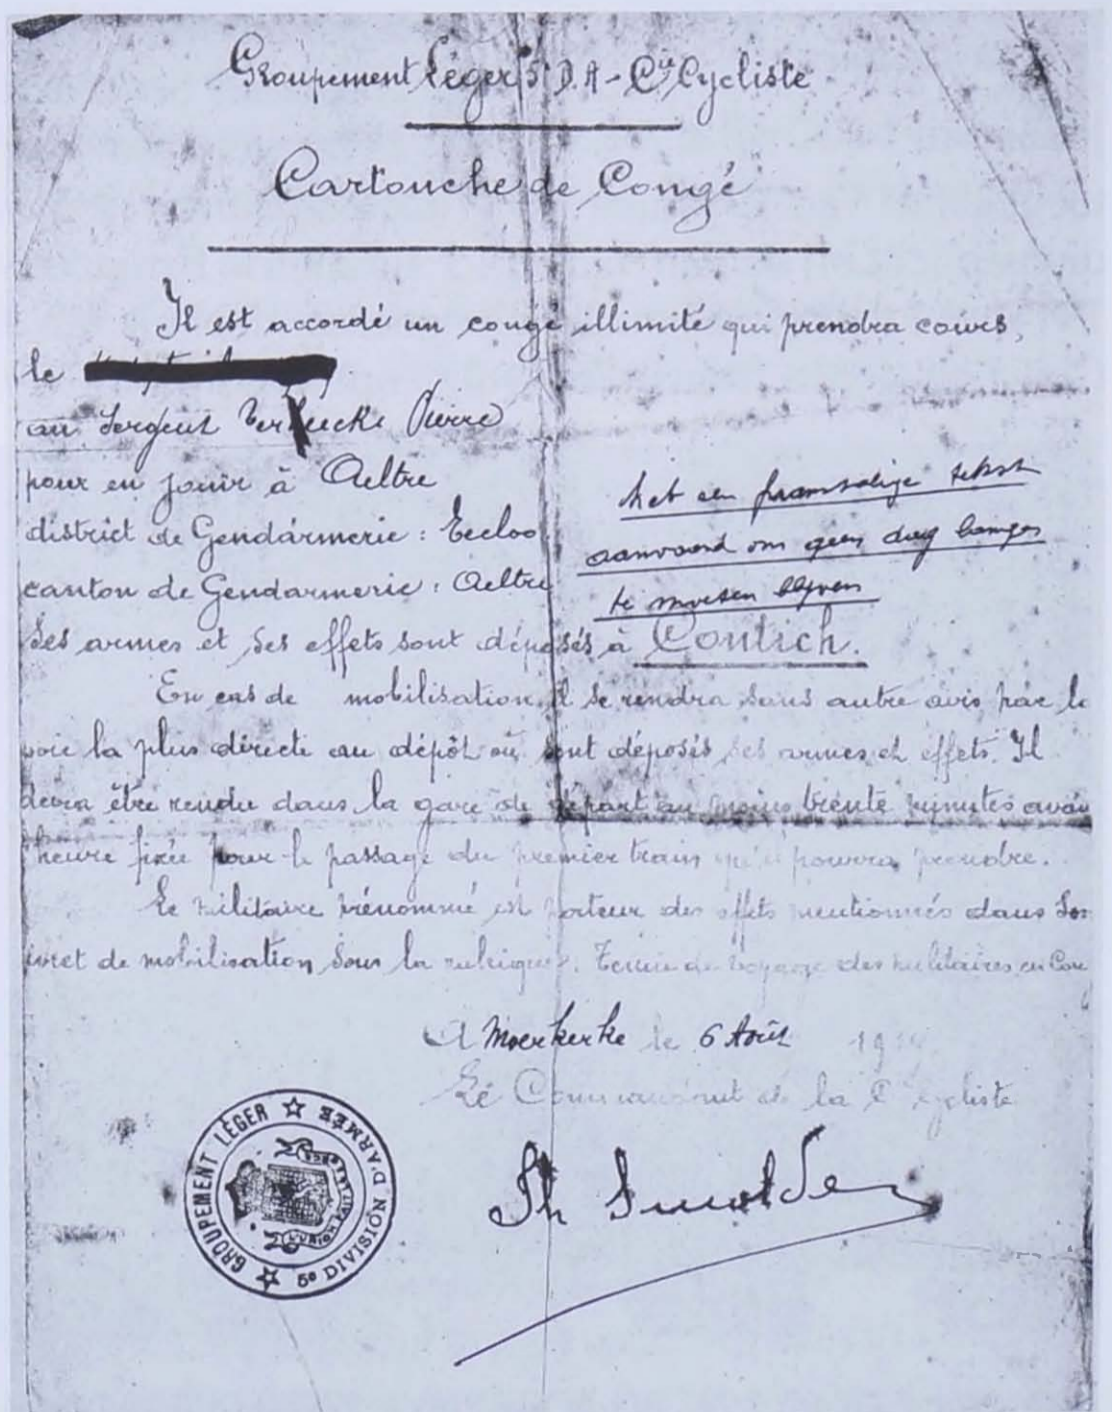 Groupement Léger 5e D.A - Cie Cycliste
Cartouche de Congé
Il est accordé un congé illimité qui prendra cours,
le
au Sergent Pierre
pour en jouir à Aeltre
district de Gendarmerie : Eecloo
canton de Gendarmerie : Aeltre
Met een franstalige tekst
aanvaard om geen dag langer
te moeten blijven
Ses armes et ses effets sont déposés à Contich.
En cas de mobilisation, il se rendra sans autre avis par la
voie la plus directe au dépôt où sont déposés ses armes et effets. Il
devra être rendu dans la gare de départ au moins trente minutes avan
heure fixée pour le passage du premier train qu'il pourra prendre.
Le militaire prénommé est porteur des effets mentionnés dans son
livret de mobilisation sous la rubrique : de voyage des militaires en Con
A Moerkerke le 6 Août 19
Le Commandant de la Cie Cycliste
Th Smolde
GROUPEMENT LÉGER ☆ 5e DIVISION D'ARMÉE ☆